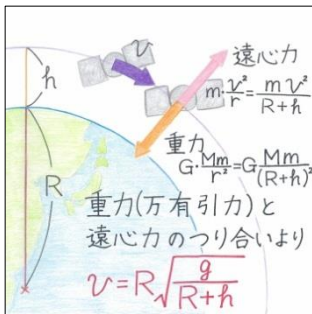 h
v
遠心力
m·v²/r = mv²/R+h
重力
G·Mm/r² = G Mm/(R+h)²
R
重力(万有引力)と
遠心力のつり合いより
v = R√g/R+h